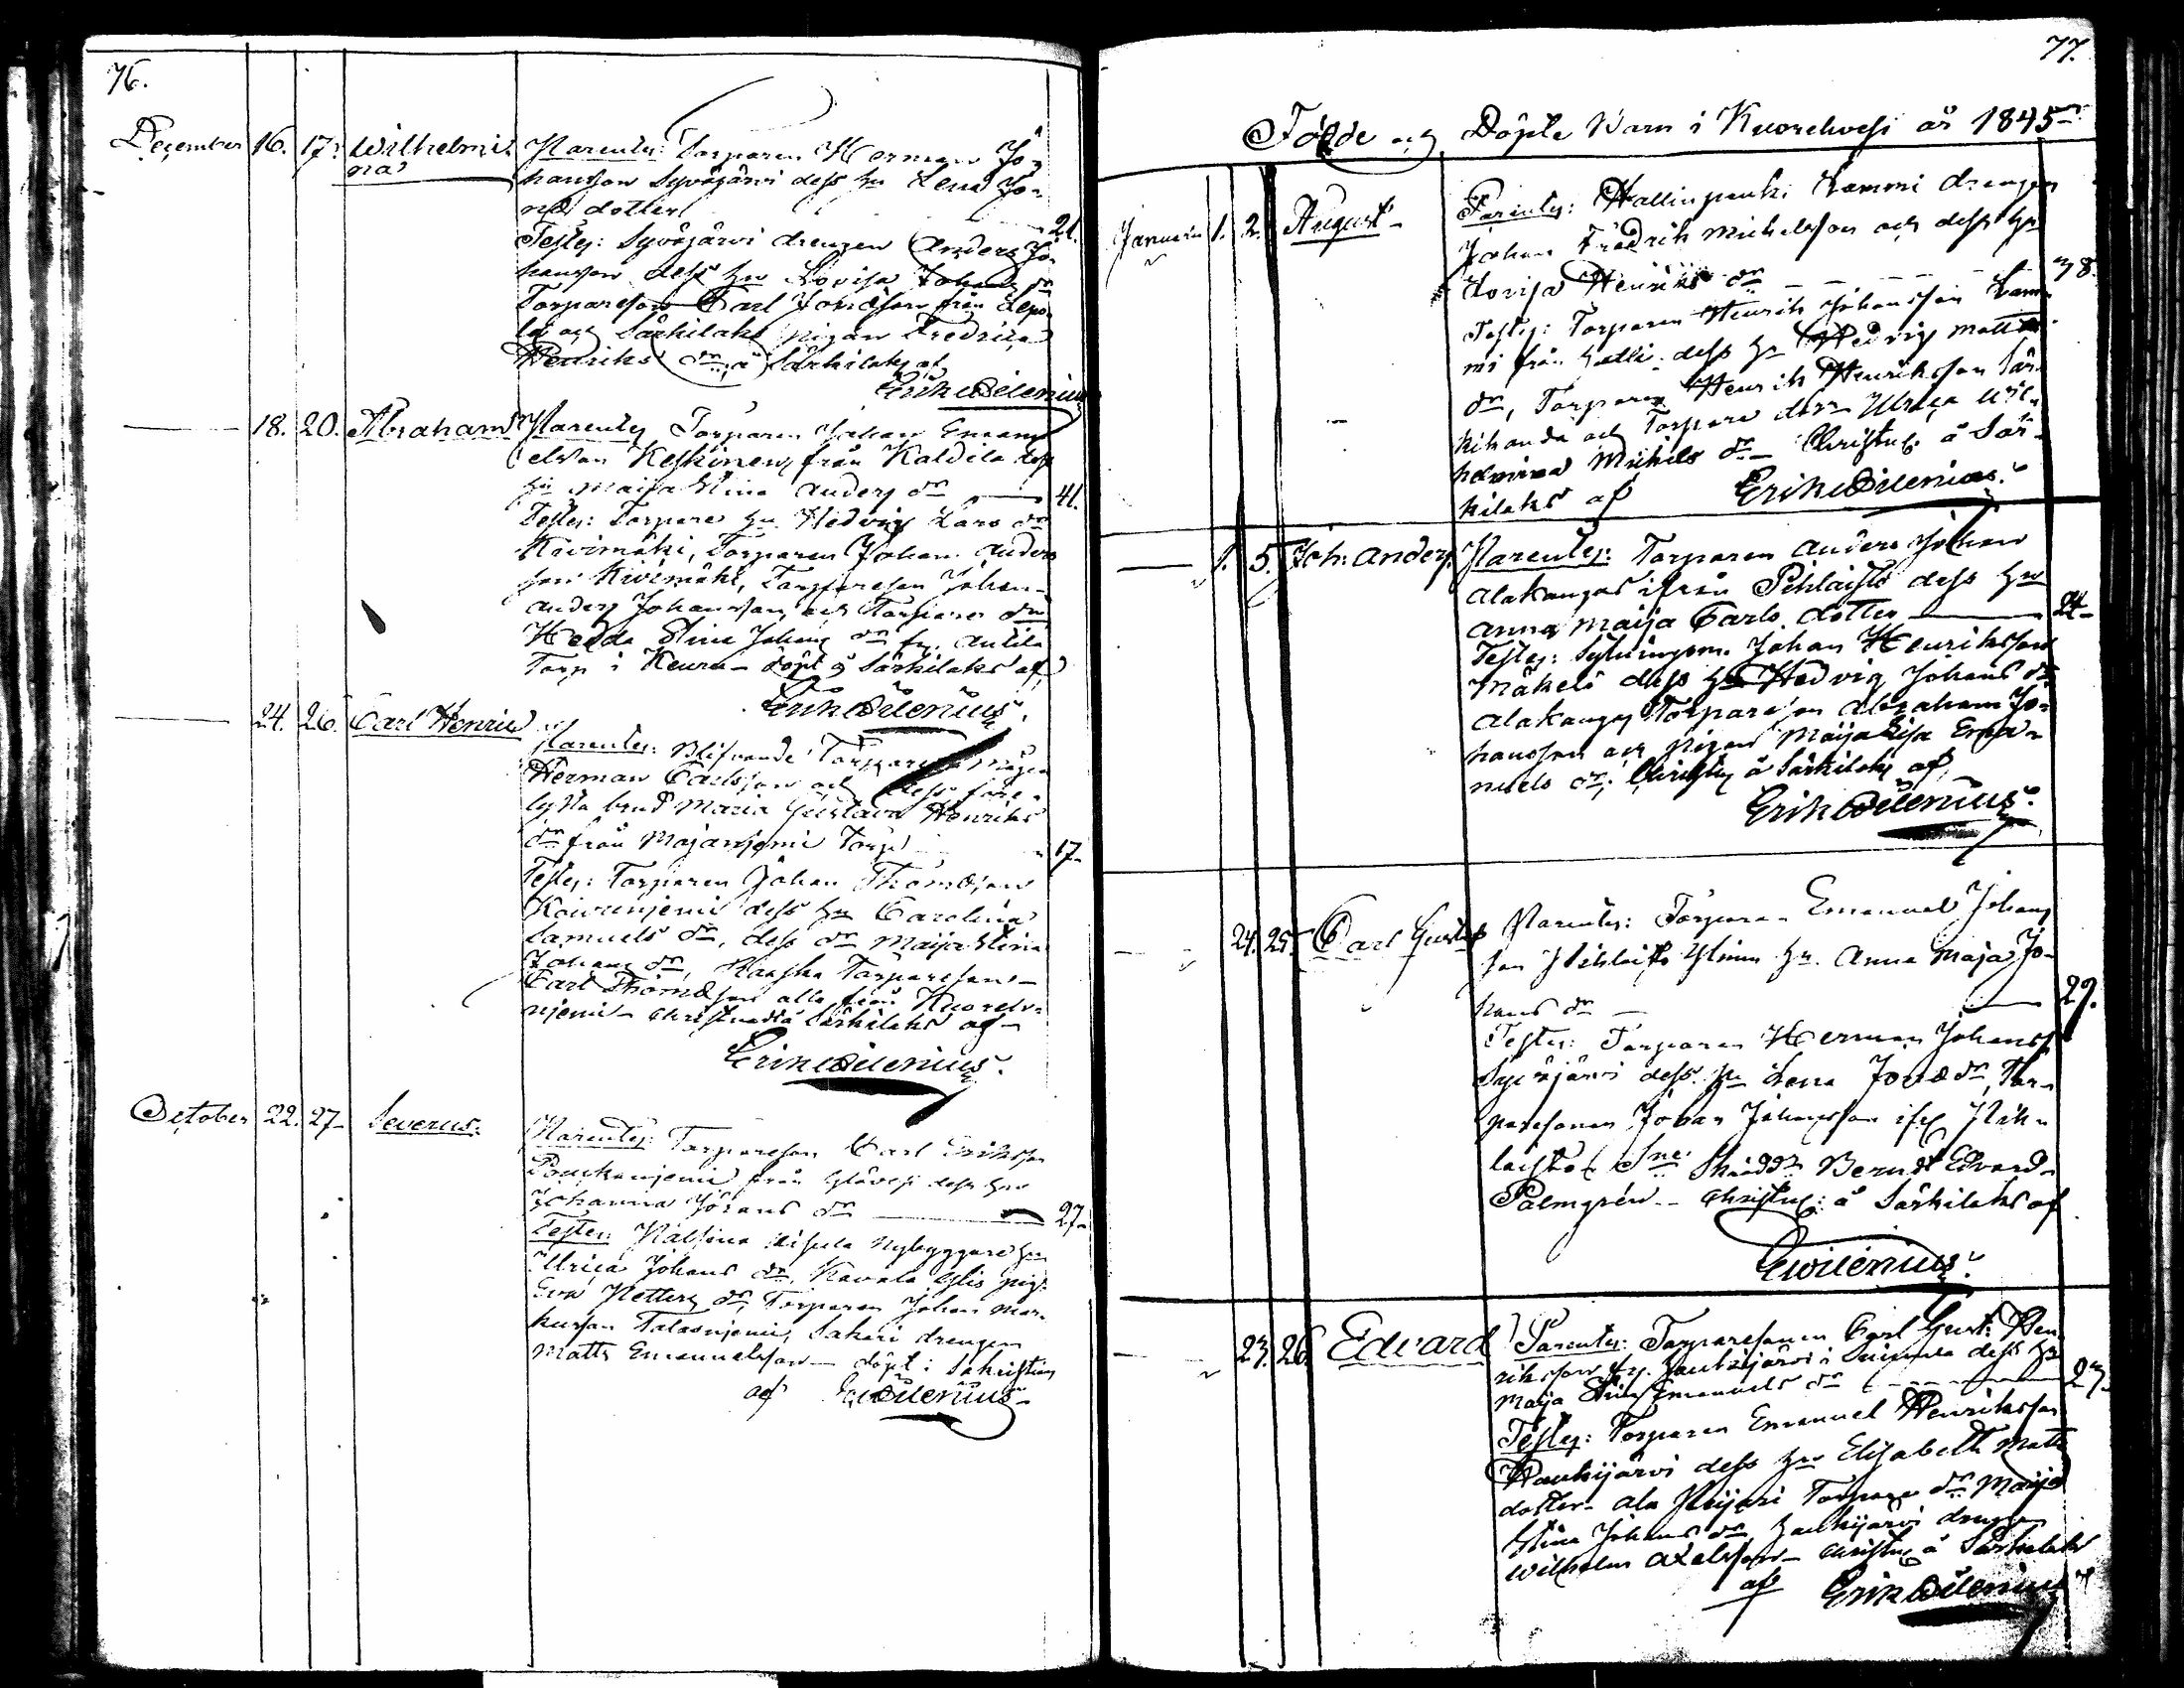 76.
December 16. 17. Wilhelmi-
na
Parentes: Torparen Herman Jo-
hansson Syväjärvi dess hu Lena Jo-
næ dotter 21.
Testes: Syväjärvi drengen Anders Jo-
hansson dess hu Lovisa Johans dr
Torpareson Carl Jonæson från Lepo-
la och Särkilaks pigan Fredrica
Henriks dr, å Särkilaks af
Erik Wilenius
18. 20. Abraham
Parentes Torparen Johan Emanu-
elsson Keskinen från Kaldila dess
hu Maija Stina Anders dr 41.
Testes: Torpare hu Hedvig Lars dr
Kivimäki, Torparen Johan Anders
son Kivimäki, Torpareson Johan
Anders Johansson och Torpare dr
Hedda Stina Johans dr fr. Antila
Torp i Keuru - döpt å Särkilaks af
Erik Wilenius.
24. 26. Carl Henric
Parentes: Blifvande Torpare mågen
Herman Carlsson och dess före-
lysta brud Maria Gustava Henriks
dr från Majaniemi Torp 17.
Testes: Torparen Johan Thomæson
Koivuniemi dess hu Carolina
Samuels dr, dess dr Maija Stina
Johans dr, Torpareson
Carl Thomæson alla från Kuore-
niemi - Christnad å Särkilaks af
Erik Wilenius.
October 22. 27. Severus.
Parentes: Torpareson Carl Eriksson
från dess hu
Johanna Johans dr 27.
Testes: Nybyggare hu
Ulrica Johans dr. Kavala pig.
Eva Petters dr, Torparen Johan Mar-
kusson Talasniemi, Sakari drengen
Matts Emanuelsson - döpt i Sakristian
af E. Wilenius

77.
Födde och Döpte Barn i Kuorehvesi år 1845
Januarii 1. 2. August
Parentes: Hallinpenki Lammi drengen
Johan Fredrik Michelsson och dess hu
Lovisa Henriks dr 38.
Testes: Torparen Henrik Johansson Lam-
mi från Halli. dess hu Hedvig Matts
dr, Torparen Henrik Henriksson Sär-
kikanda och Torpare dr Ulrica Wil-
helmina Michels dr - Christn. å Sär-
kilaks af Erik Wilenius.
1. 5. Joh: Anders.
Parentes: Torparen Anders Johan
Alakangas ifrån Pihlaisto dess hu
Anna Maija Carls dotter 24
Testes: Johan Henriksson
Mäkelä dess hu Hedvig Johans dr
Alakangas Torpareson Abraham Jo-
hansson och pigan Maija Lisa Ema-
nuels dr; Christn. å Särkilaks af
Erik Wilenius.
24. 25. Carl Gustaf
Parentes: Torparen Emanuel Johans
son Pihlaisto hu. Anna Maja Jo-
hans dr 29.
Testes: Torparen Herman Johanss.
Syväjärvi dess hu Lena Jonæ dr, Tor-
paresonen Johan Johansson ifr. Pih-
laisto Skrädd. Berndt Edvard
Palmgrén - Christn: å Särkilaks af
E Wilenius.
23. 26. Edvard
Parentes: Torparesonen Carl Gust: Hen-
riksson fr. Haukijärvi i dess hu
Maja Stina Emanuels dr 27.
Testes: Torparen Emanuel Henriksson
Haukijärvi dess hu Elisabeth Matts
dotter - Ala Torpare dr Maija
Stina Johans dr, Haukijärvi drengen
Wilhelm Axelsson - Christn. å Särkilaks
af Erik Wilenius